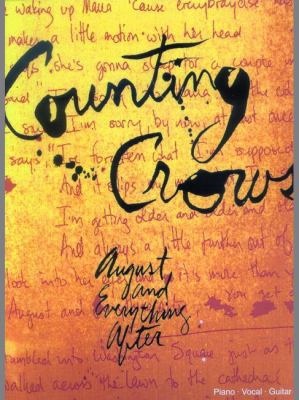 waking up Maria 'cause everybody else has
makes a little motion with her head
she's gonna sleep for a couple
Counting
says I'm sorry by now, at
says "I've forgotten what I'm supposed
Crows
And it slips
I'm getting older and older and
And always a little further out of
August
and
Everything
After
look into her eyes it's more than
August and
tumbled into Washington Square just as
walked across the lawn to the cathedral
Piano · Vocal · Guitar